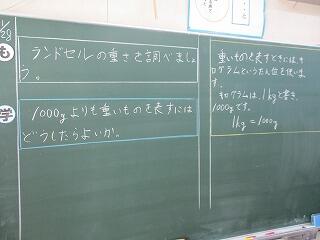 1/29
も
ランドセルの重さを調べましょ
う。
学
1000gよりも重いものを表すには
どうしたらよいか。
重いものを表すときには、キ
ログラムというたんいを使いま
す。
キログラムは、1kgと書き、
1000gです。
1kg=1000g